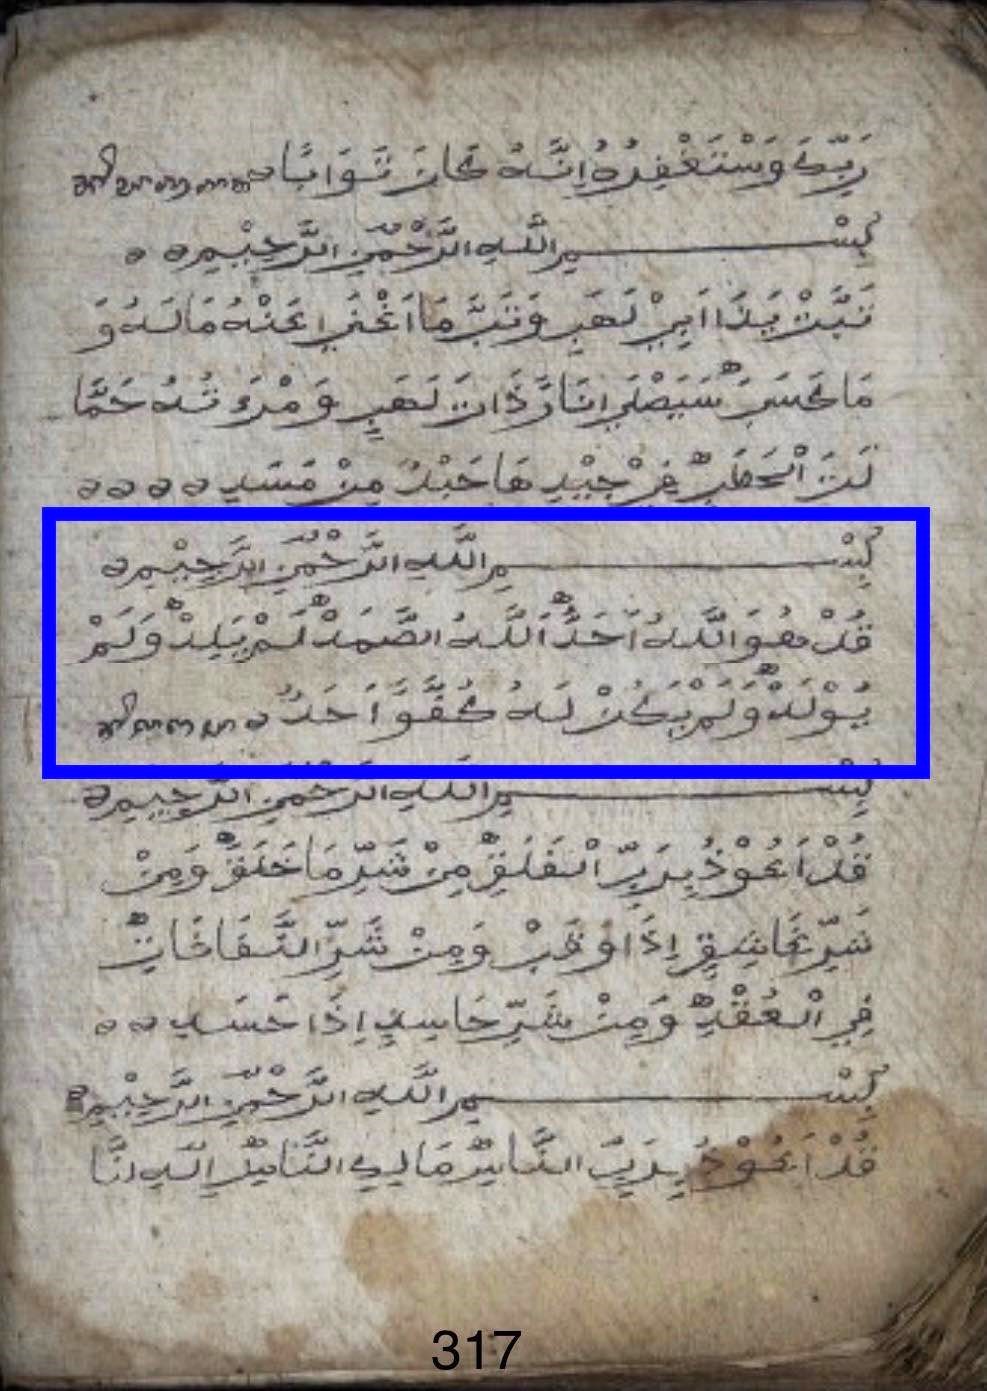 رَبِّكَ وَسْتَغْفِرْهُ اِنَّهُ كَانَ تَوَّابًا
بِسْمِ اللَّهِ الرَّحْمٰنِ الرَّحِيْمِ
تَبَّتْ يَدَا اَبِيْ لَهَبٍ وَتَبَّ مَا اَغْنٰى عَنْهُ مَالُهُ وَ
مَا كَسَبَ سَيَصْلٰى نَارًا ذَاتَ لَهَبٍ وَمْرَءَتُهُ حَمَّا
لَتَ الْحَطَبِ فِيْ جِيْدِهَا حَبْلٌ مِنْ مَسَدٍ
بِسْمِ اللَّهِ الرَّحْمٰنِ الرَّحِيْمِ
قُلْ هُوَ اللَّهُ اَحَدٌ اَللَّهُ الصَّمَدْ لَمْ يَلِدْ وَلَمْ
يُوْلَدْ وَلَمْ يَكُنْ لَهُ كُفُوًا اَحَدٌ
بِسْمِ اللَّهِ الرَّحْمٰنِ الرَّحِيْمِ
قُلْ اَعُوْذُ بِرَبِّ الْفَلَقِ مِنْ شَرِّ مَا خَلَقَ وَمِنْ
شَرِّ غَاسِقٍ اِذَا وَقَبَ وَمِنْ شَرِّ النَّفَاثَاتِ
فِي الْعُقَدِ وَمِنْ شَرِّ حَاسِدٍ اِذَا حَسَدَ
بِسْمِ اللَّهِ الرَّحْمٰنِ الرَّحِيْمِ
قُلْ اَعُوْذُ بِرَبِّ النَّاسِ مَالِكِ النَّاسِ اِلٰهِ النَّا
317